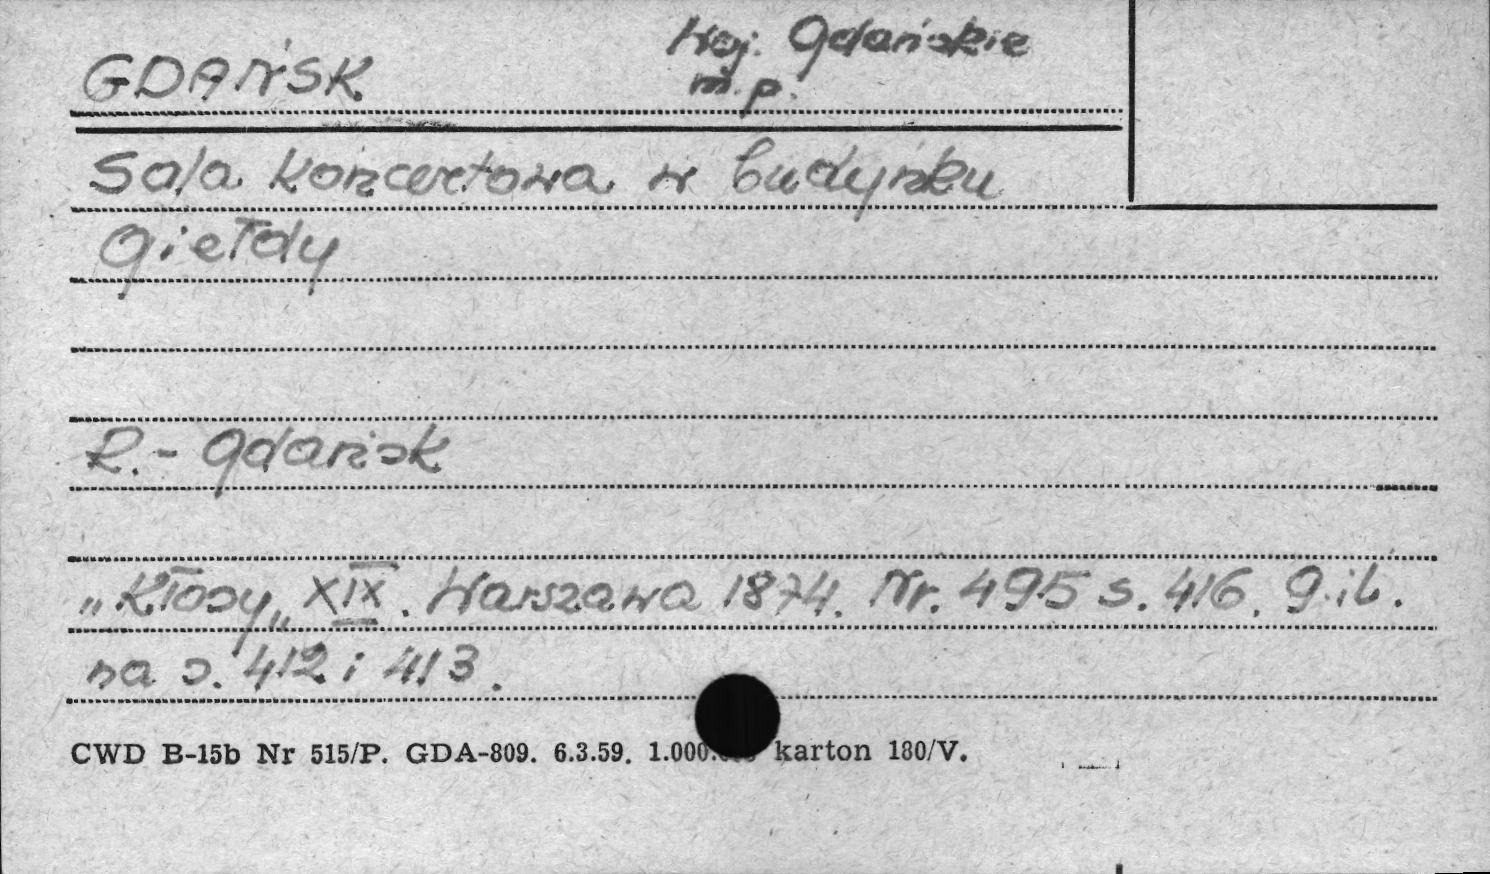 GDAŃSK
Woj. Gdańskie
m.p.
Sala koncertowa w budynku
giełdy
R. - Gdańsk
„Kłosy„ XIX. Warszawa 1874. Nr. 495 s. 416. g.il.
na s. 412 i 413.
CWD B-15b Nr 515/P. GDA-809. 6.3.59. 1.000. karton 180/V.